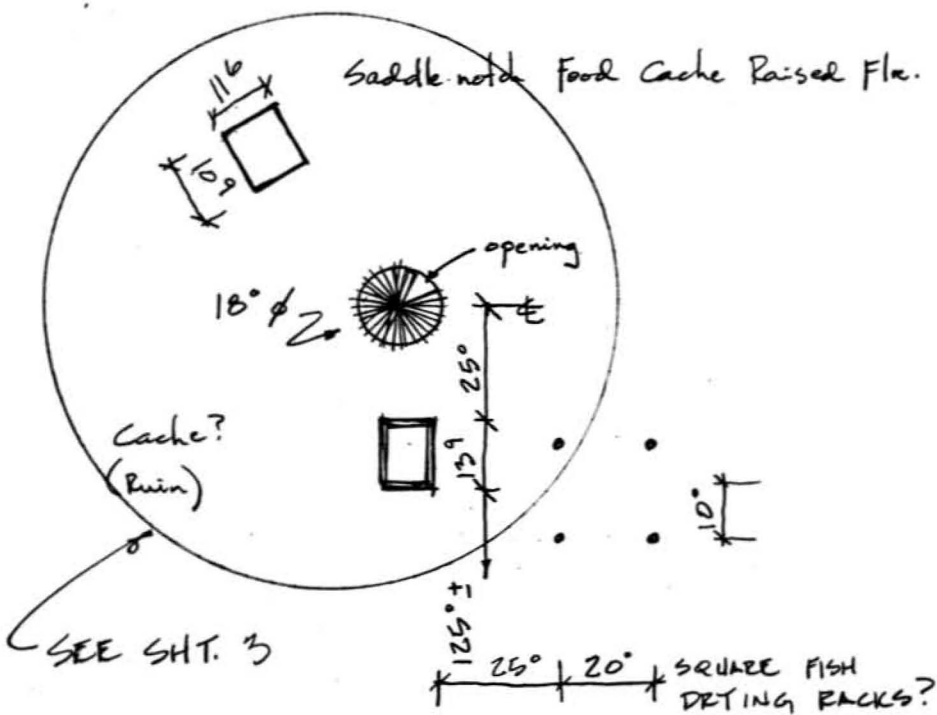 Saddle-notch Food Cache Raised Flr.
11⁶
10⁹
opening
18° ϕ
℄
25°
Cache?
(Ruin)
13⁹
10°
125° ±
SEE SHT. 3
25° 20° SQUARE FISH
DRYING RACKS?